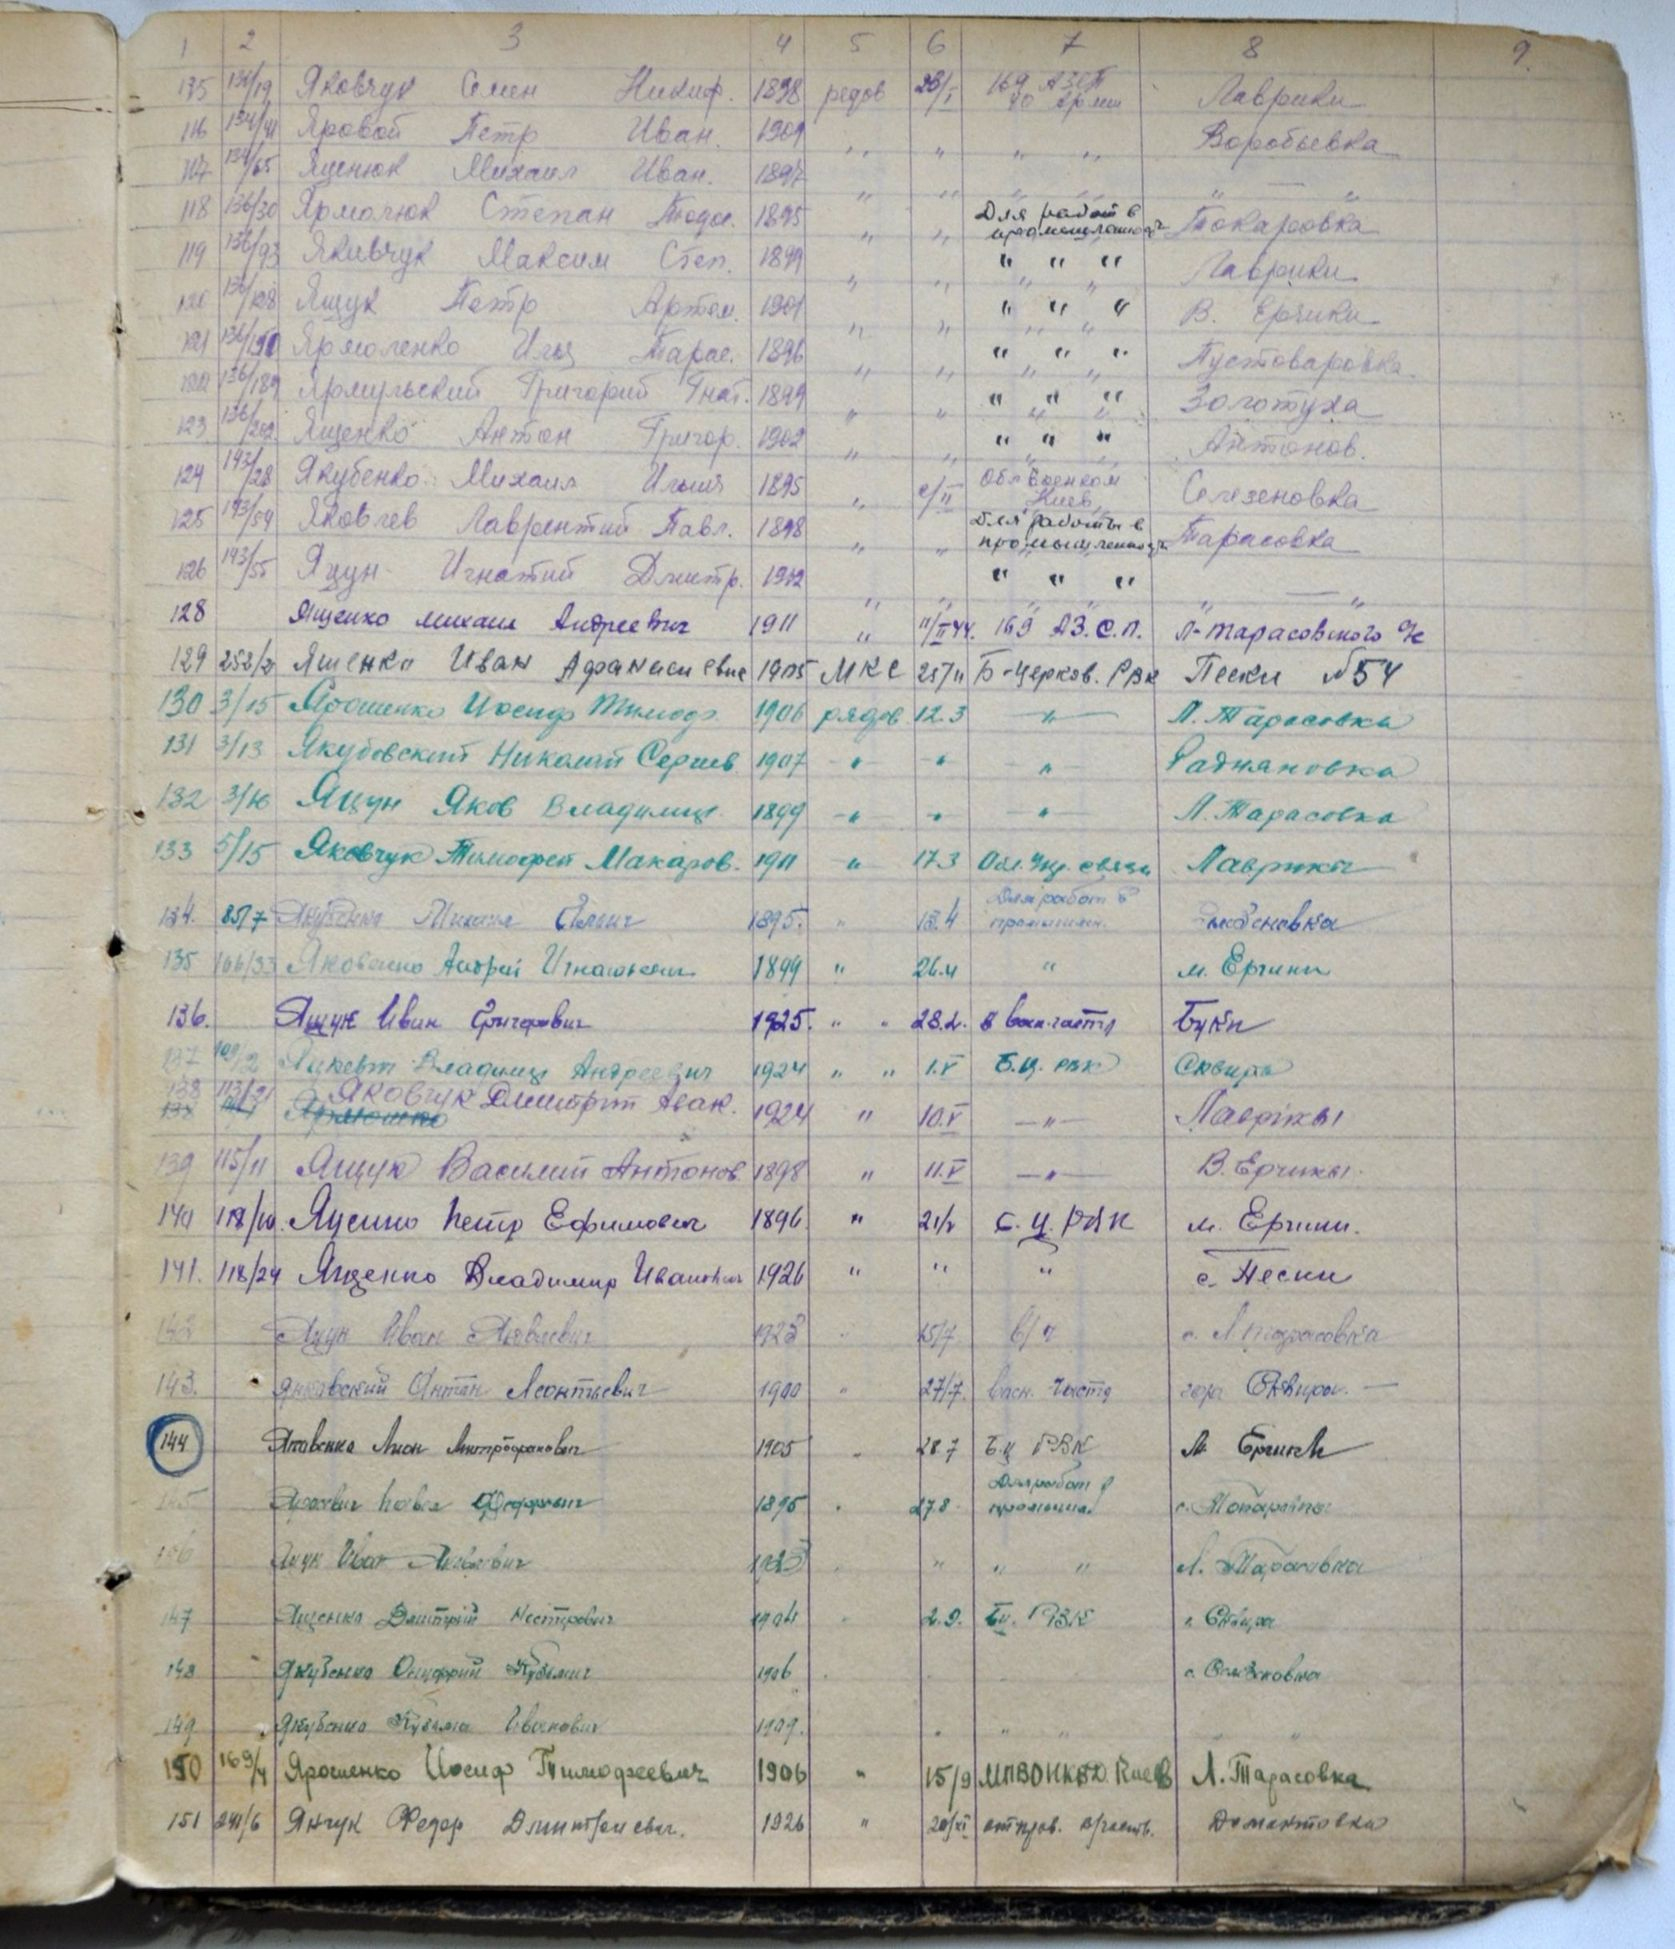 1 2 3 4 5 6 7 8 9.
115 134/19 Яковчук Семен Никиф. 1898 редов 28/I 169 АЗСП 40 Армии Лаврики
116 134/41 Яровой Петр Иван. 1901 „ „ „ „ Воробьевка
117 134/65 Яценюк Михаил Иван. 1897 „ „ „ „ „ — „
118 136/30 Ярмолюк Степан Тодос. 1895 „ „ Для работ в промышленност Токаровка
119 136/93 Якивчук Максим Степ. 1899 „ „ " " " Лаврики
120 136/128 Ящук Петр Артем. 1901 „ „ " " " В. Ерчики
121 136/150 Ярмоленко Илья Тарас. 1896 „ „ " " " Пустоваровка.
122 136/189 Ярмульский Григорий Гнат. 1899 „ „ " " " Золотуха
123 136/202 Ященко Антон Григор. 1902 „ „ " " " Антонов.
124 143/28 Якубенко Михаил Ильич 1895 „ /II Облвоенком Киев Селезеновка
125 143/54 Яковлев Лаврентий Павл. 1898 „ „ Для работы в промышленност Тарасовка
126 143/55 Яцун Игнатий Дмитр. 1912 „ „ " " " „ — „
128 Ященко Михаил Андреевич 1911 „ 11/II 44. 169 АЗ.С.П. Л-Тарасовского
129 252/ Яшенко Иван Афанасиевич 1905 МКС 25/II Б-Церков. РВК Пески №54
130 3/15 Ярошенко Иосиф Тимоф. 1906 рядов 12.3 —„— Л. Тарасовка
131 3/13 Якубовский Николай Сергиев 1907 -„- -„- —„—
132 3/16 Яцун Яков Владимир. 1899 -„- -„- —„— Л. Тарасовка
133 5/15 Яковчук Тимофей Макаров. 1911 „ 17.3 Обл. Упр. связи Лаврики
134. 85/7 Якубенко Михаил Ильич 1895. „ 18.4 Для работ в промышлен.
135 106/33 Яковенко Андрей Игнатьевич 1899 " 26.4 " м. Ерчики
136. Ящук Иван Григорович 1925. „ „ 28.4. в воен.части Буки
137 109/2 Владимир Андреевич 1924 „ „ 1.V Б.Ц. РВК Сквира
138 113/21 Яковчук Дмитрий Авак. 1924 " 10.V —„— Лаврики
139 115/11 Ящук Василий Антонов. 1898 " 11.V —„— В. Ерчики.
140 118/10. Яценко Петр Ефимович 1896. " 21/V Б.Ц. РВК м. Ерчики.
141. 118/24 Ященко Владимир Иванович 1926 " " " с. Пески
142 Яцун Иван Яковлевич 1923 „ 25/7 в/ч с. Л. Тарасовка
143. Янковский Антон Леонтьевич 1900 „ 27/7. воен. часть Сквира. —
144 Яковенко Митрофанович 1905 „ 28.7 Б.ц РВК м. Ерчики
145 1895 „ 27.8 Для работ в промышл.
146 Яцун Иван Яковлевич 1923 „ " " " Л. Тарасовка
147 Ященко Дмитрий Нестерович 1904 „ 2.9. Б.ц. РВК г. Сквира
148 Якубенко Онуфрий Кузьмич 1906 „
149 Якубенко Кузьма Иванович 1909. „ " " " "
150 169/4 Ярошенко Иосиф Тимофеевич 1906 " 15/9 МПВО НКВД. Киев Л. Тарасовка
151 241/6 Янчук Федор Дмитриевич. 1926 " 20/XI отправ. в/часть. Домантовка